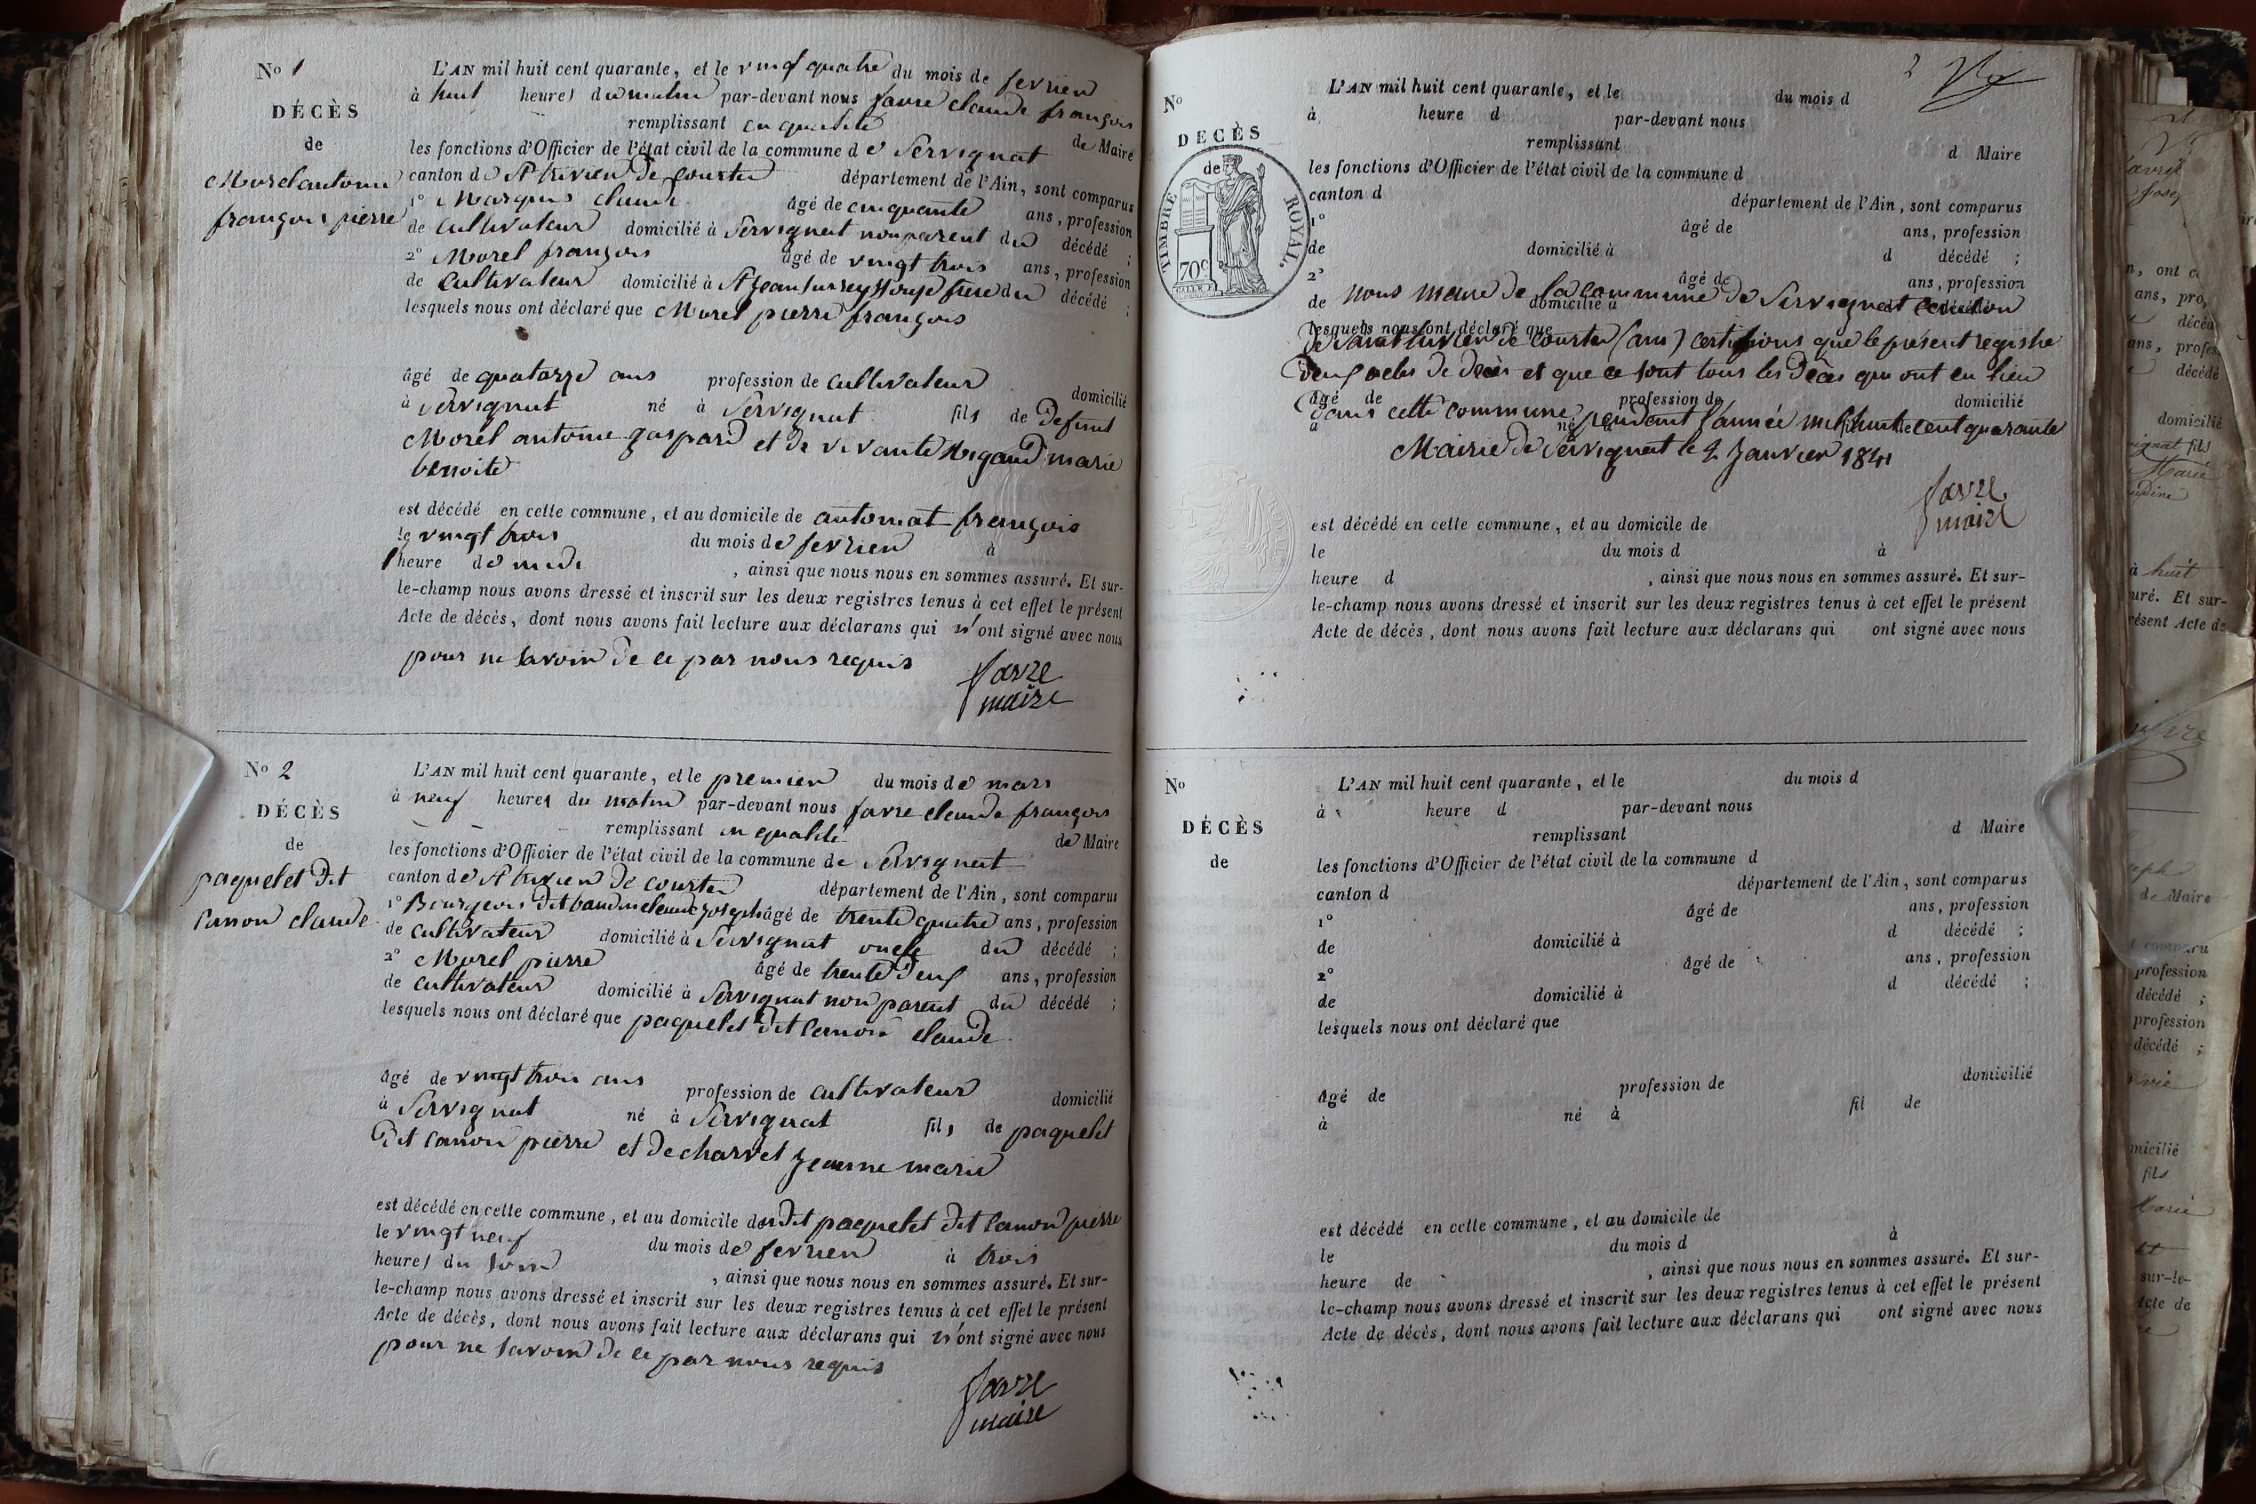 No 1
DÉCÈS
de
Morel antoine
françois pierre
L'AN mil huit cent quarante, et le vingt quatre du mois de fevrier
à huit heures du matin par-devant nous favre claude françois
remplissant en qualité de Maire
les fonctions d'Officier de l'état civil de la commune de Servignat
canton de St trivier De Courtes département de l'Ain, sont comparus
1° Marquis claude âgé de cinquante ans, profession
de Cultivateur domicilié à Servignat non parent du décédé ;
2° Morel françois âgé de vingt trois ans, profession
de Cultivateur domicilié à St jean sur reyssouse frere du décédé ;
lesquels nous ont déclaré que Morel pierre françois
âgé de quatorze ans profession de cultivateur domicilié
à Servignat né à Servignat fils de Defunt
Morel antoine gaspard et de vivante Rigaud marie
benoite
est décédé en cette commune, et au domicile de françois
le vingt trois du mois de fevrier à
1 heure de midi , ainsi que nous nous en sommes assuré. Et sur-
le-champ nous avons dressé et inscrit sur les deux registres tenus à cet effet le présent
Acte de décès, dont nous avons fait lecture aux déclarans qui n'ont signé avec nous
pour ne savoir de ce par nous requis
favre
maire
No 2
DÉCÈS
de
paquelet dit
Canon claude
L'AN mil huit cent quarante, et le premier du mois de mars
à neuf heures du matin par-devant nous favre claude françois
remplissant en qualité de Maire
les fonctions d'Officier de l'état civil de la commune de Servignat
canton de St trivier De Courtes département de l'Ain, sont comparus
1° Bourgeois dit joseph âgé de trente quatre ans, profession
de cultivateur domicilié à Servignat oncle du décédé ;
2° Morel pierre âgé de trente deux ans, profession
de cultivateur domicilié à Servignat non parent du décédé ;
lesquels nous ont déclaré que paquelet dit Canon claude
âgé de vingt trois ans profession de cultivateur domicilié
à Servignat né à Servignat fils de paquelet
dit Canon pierre et de charvet jeanne marie
est décédé en cette commune, et au domicile dudit paquelet dit Canon pierre
le vingt neuf du mois de fevrier à trois
heures du soir , ainsi que nous nous en sommes assuré. Et sur-
le-champ nous avons dressé et inscrit sur les deux registres tenus à cet effet le présent
Acte de décès, dont nous avons fait lecture aux déclarans qui n'ont signé avec nous
pour ne savoir de ce par nous requis
favre
maire
2
No
DÉCÈS
de
TIMBRE ROYAL
70c
L'AN mil huit cent quarante, et le du mois d
à heure d par-devant nous
remplissant d Maire
les fonctions d'Officier de l'état civil de la commune d
canton d département de l'Ain, sont comparus
1° âgé de ans, profession
de domicilié à d décédé ;
2° âgé de ans, profession
nous maire de la commune de Servignat canton
de domicilié à d décédé
lesquels nous ont déclaré que
de Saint trivier de Courtes (ain) certifions que le présent registre
deux actes de Décès et que ce sont tous les Décès qui ont eu lieu
âgé de profession de domicilié
dans cette commune pendant l'année mil huit cent quarante
à né à fil de
Mairie de Servignat le 2 Janvier 1841
favre
maire
est décédé en cette commune, et au domicile de
le du mois d à
heure d , ainsi que nous nous en sommes assuré. Et sur-
le-champ nous avons dressé et inscrit sur les deux registres tenus à cet effet le présent
Acte de décès, dont nous avons fait lecture aux déclarans qui ont signé avec nous
No
DÉCÈS
de
L'AN mil huit cent quarante, et le du mois d
à heure d par-devant nous
remplissant d Maire
les fonctions d'Officier de l'état civil de la commune d
canton d département de l'Ain, sont comparus
1° âgé de ans, profession
de domicilié à d décédé ;
2° âgé de ans, profession
de domicilié à d décédé ;
lesquels nous ont déclaré que
âgé de profession de domicilié
à né à fil de
est décédé en cette commune, et au domicile de
le du mois d à
heure de , ainsi que nous nous en sommes assuré. Et sur-
le-champ nous avons dressé et inscrit sur les deux registres tenus à cet effet le présent
Acte de décès, dont nous avons fait lecture aux déclarans qui ont signé avec nous